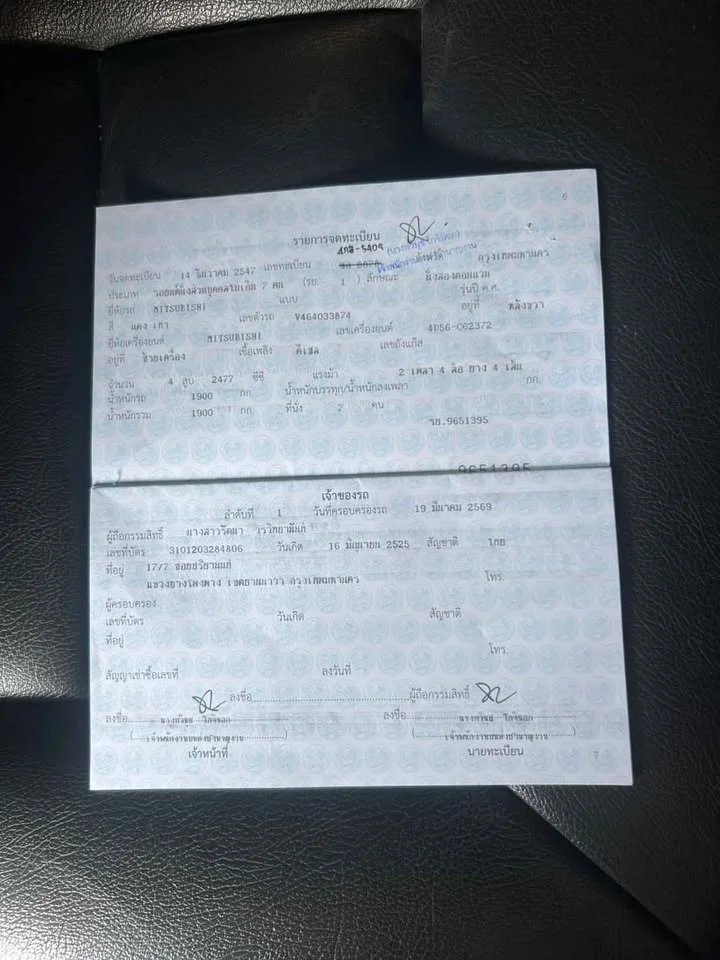 6
รายการจดทะเบียน
วันจดทะเบียน 14 ธันวาคม 2547 เลขทะเบียน กรุงเทพมหานคร
ประเภท รถยนต์นั่งส่วนบุคคลไม่เกิน 7 คน (รย. 1 ) ลักษณะ นั่งสองตอนแวน
ยี่ห้อรถ MITSUBISHI แบบ รุ่นปี ค.ศ.
สี แดง เทา เลขตัวรถ V464033874 อยู่ที่ หลังขวา
ยี่ห้อเครื่องยนต์ MITSUBISHI เลขเครื่องยนต์ 4D56-C62372
อยู่ที่ ซ้ายเครื่อง เชื้อเพลิง ดีเซล เลขถังแก๊ส
จำนวน 4 สูบ 2477 ซีซี แรงม้า 2 เพลา 4 ล้อ ยาง 4 เส้น
น้ำหนักรถ 1900 กก. น้ำหนักบรรทุก/น้ำหนักลงเพลา กก.
น้ำหนักรวม 1900 กก. ที่นั่ง 7 คน
รย.9651395
9651395
เจ้าของรถ
ลำดับที่ 1 วันที่ครอบครองรถ 19 มีนาคม 2569
ผู้ถือกรรมสิทธิ์ นางสาววัฒนา
เลขที่บัตร 3101203284806 วันเกิด 16 มิถุนายน 2525 สัญชาติ ไทย
ที่อยู่ 17/7
แขวงบางโพงพาง เขตยานนาวา กรุงเทพมหานคร โทร.
ผู้ครอบครอง
เลขที่บัตร วันเกิด สัญชาติ
ที่อยู่
โทร.
สัญญาเช่าซื้อเลขที่ ลงวันที่
ลงชื่อ ผู้ถือกรรมสิทธิ์
ลงชื่อ ลงชื่อ
(เจ้าพนักงานขนส่งชำนาญงาน) (เจ้าพนักงานขนส่งชำนาญงาน)
เจ้าหน้าที่ นายทะเบียน
7